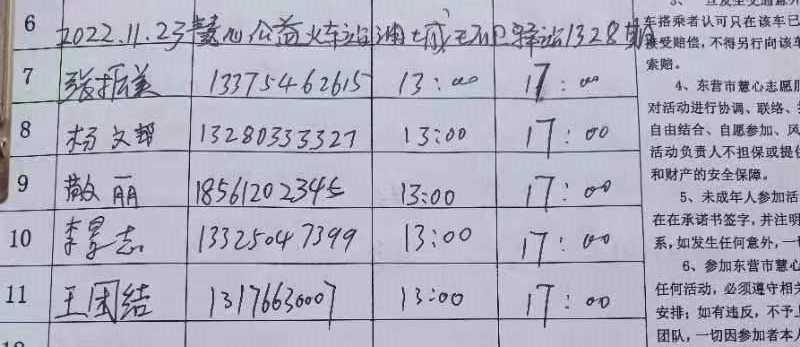 6 2022.11.23慧心公益火车站油城 驿站1328期
7 张振美 13375462615 13:00 17:00
8 杨文 13280333327 13:00 17:00
9 敬丽 18561202345 13:00 17:00
10 李景志 13325047399 13:00 17:00
11 王团结 13176630007 13:00 17:00
车搭乘者认可只在该车已
接受赔偿，不得另行向该车
索赔。
4、东营市慧心志愿
对活动进行协调、联络、
自由结合、自愿参加、风
活动负责人不担保或提
和财产的安全保障。
5、未成年人参加活
在在承诺书签字，并注明
系，如发生任何意外，一
6、参加东营市慧心
任何活动，必须遵守相关
安排；如有违反，不予
团队，一切因参加者本人